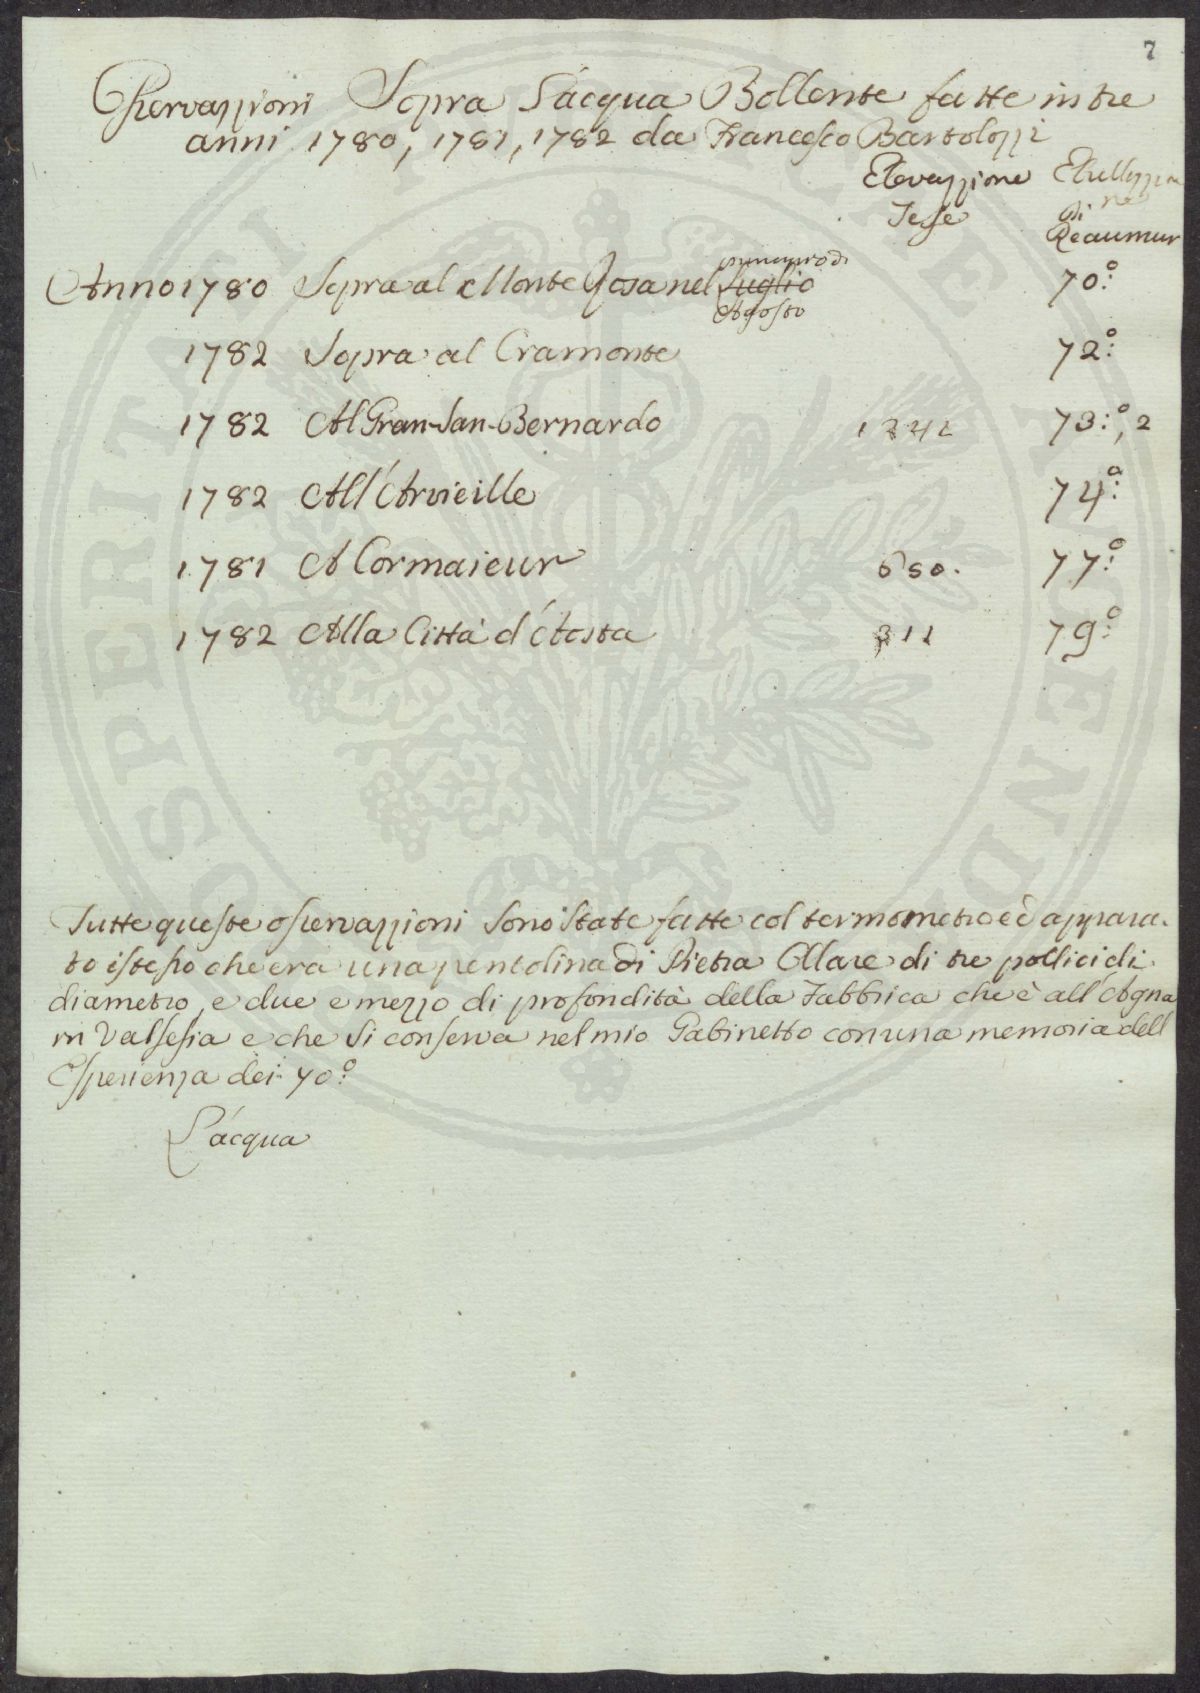 7
Osservazzioni Sopra L'acqua Bollente fatte in tre
anni 1780, 1781, 1782 da Francesco Bartolozzi
Elevazzione Ebullizzio
ne
Tese di
Reaumur
principio di
Anno 1780 Sopra al Monte Rosa nel Luglio 70°:
Agosto
1782 Sopra al Cramonte 72°:
1782 Al Gran-San-Bernardo 1241 73:°,2
1782 All'Arvieille 74°:
1781 A Cormaieur 650. 77°:
1782 Alla Città d'Aosta 311 79°:
Tutte queste osservazzioni sono state fatte col termometro ed appara-
to istesso che era una pentolina di Pietra Ollare di tre pollici di
diametro, e due e mezzo di profondità della Fabbrica che è all'Agna
in Valsesia e che si conserva nel mio Gabinetto con una memoria dell
Esperienza dei 70°:
L'acqua
PROSPERITATI PUBLICAE AUGENDAE